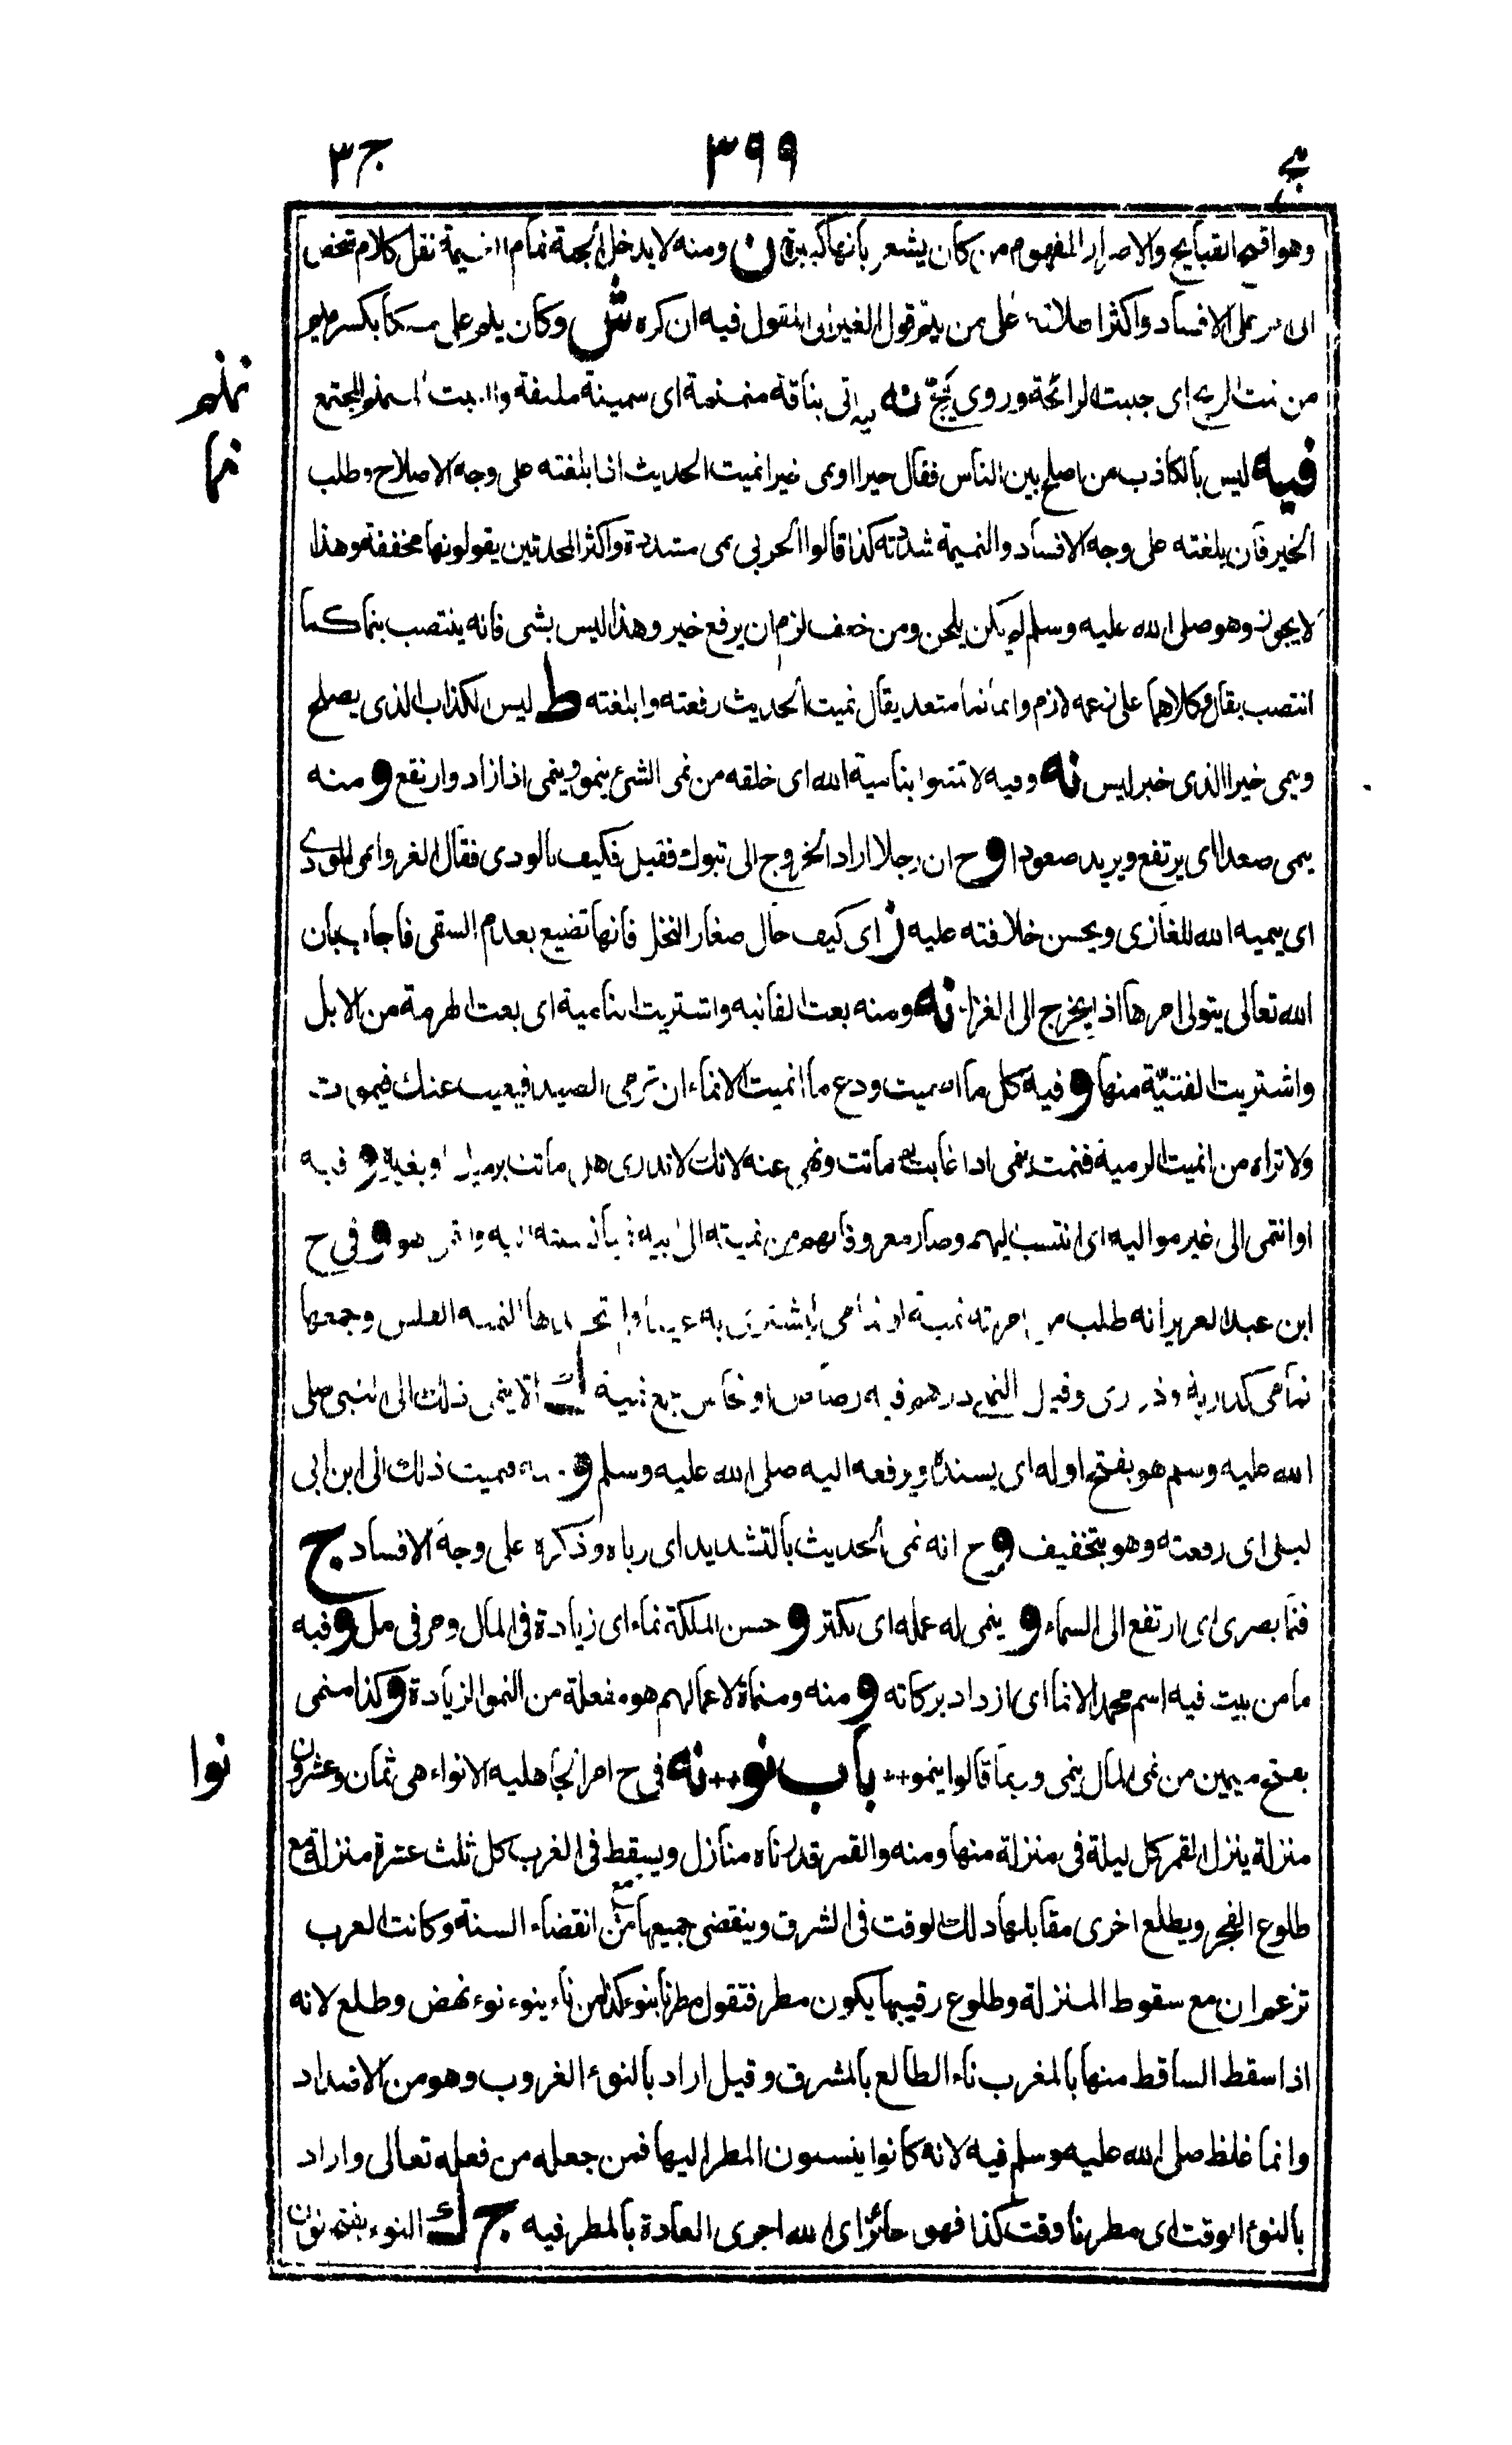 ج ٣
٣٩٩
وهو اقبح القبايح والاصرار المفهوم من كان يشعر بانها كبيرة ن ومنه لا يدخل الجنة نمام النميمة نقل كلام شخص
على الافساد واكثر اطلاقه على من ينم قول الغير الى المقول فيه ان كره ش وكان يلم على بكسر ميم
من نمت الريح اى جبت الرائحة وروى نه اتى بناقة منمنمة اى سمينة ملتفة والنبت المجتمع
نمنم
فيه ليس بالكاذب من اصلح بين الناس فقال خيرا او نمى خيرا نميت الحديث اذا بلغته على وجه الاصلاح وطلب
نما
الخير فان بلغته على وجه الافساد والنميمة شددته كذا قالوا الحربى نمى مشددة واكثر المحدثين يقولونها مخففة وهذا
لا يجوز وهو صلى الله عليه وسلم لم يكن يلحن ومن خفف لزم ان يرفع خير وهذا ليس بشى فانه ينتصب بنما كما
انتصب بقال وكلاهما على زعمه لازم وانما نما متعد يقال نميت الحديث رفعته وابلغته ط ليس الكذاب الذى يصلح
وينمى خيرا الذى خبر ليس نه وفيه لا تمثلوا بنامية الله اى خلقه من نمى الشئ ينمو وينمى اذا زاد وارتفع و منه
ينمى صعدا اى يرتفع ويريد صعودا و ح ان رجلا اراد الخروج الى تبوك فقيل فكيف بالودى فقال الغزو انمى للودى
اى ينميه الله للغازى ويحسن خلافته عليه ز اى كيف حال صغار النخل فانها تضيع بعدم السقى فاجاب بان
الله تعالى يتولى امرها اذ ا يخرج الى الغزا نه ومنه بعت الفانيه واشتريت النامية اى بعت الهرمة من الابل
واشتريت الفتيّة منها و فيه كل ما اصميت ودع ما انميت الانماء ان ترمى الصيد فيغيب عنك فيموت
ولا تراه من انميت الرمية فنمت تنمى اذا غابت ثم ماتت ونهى عنه لانك لا تدرى هل ماتت برميك او بغيره و فيه
او انتمى الى غير مواليه اى انتسب اليهم وصار معروفا بهم من نميته الى ابيه نسبته اليه وانتمى هو و فى ح
ابن عبد العزيز انه طلب من امرته نمية او نمامى ليشترى به عنبا فلم تجدها النمية الفلس وجمعها
نمامى كذرية وذرارى وقيل النمى درهم فيه رصاص او نحاس جمع نمية ك الا ينمى ذلك الى النبى صلى
الله عليه وسلم هو بفتح اوله اى يسنده ويرفعه اليه صلى الله عليه وسلم و منه فنميت ذلك الى ابن ابى
ليلى اى رفعته وهو بتخفيف و ح انه نمى الحديث بالتشديد اى رباه وذكره على وجه الافساد ج
فنما بصرى اى ارتفع الى السماء و ينمى له عمله اى يكثر و حسن الملكة نماء اى زيادة فى المال ومر فى مل و فيه
ما من بيت فيه اسم محمد الا نما اى ازداد بركاته و منه ومنماة لاعمالهم هو مفعلة من النمو الزيادة و كذا منمى
بفتح ميمين من نمى المال ينمى وربما قالوا ينمو ++ باب نو ++ نه فى ح امر الجاهليه الانواء هى ثمان وعشرون
نوا
منزلة ينزل القمر كل ليلة فى منزلة منها ومنه والقمر قدرناه منازل ويسقط فى الغرب كل ثلث عشرة منزلة مع
طلوع الفجر ويطلع اخرى مقابلها ذلك الوقت فى الشرق وينقضى جميعها مع انقضاء السنة وكانت العرب
تزعم ان مع سقوط المنزلة وطلوع رقيبها يكون مطر فتقول مطرنا بنوء كذا من ناء ينوء نوء نهض وطلع لانه
اذا سقط الساقط منها بالمغرب ناء الطالع بالمشرق وقيل اراد بالنوء الغروب وهو من الاضداد
وانما غلظ صلى الله عليه وسلم فيه لانه كانوا ينسبون المطر اليها فمن جعله من فعله تعالى واراد
بالنوء الوقت اى مطرنا وقت كذا فهو جائز اى الله اجرى العادة بالمطر فيه ج ك النوء بفتح نون